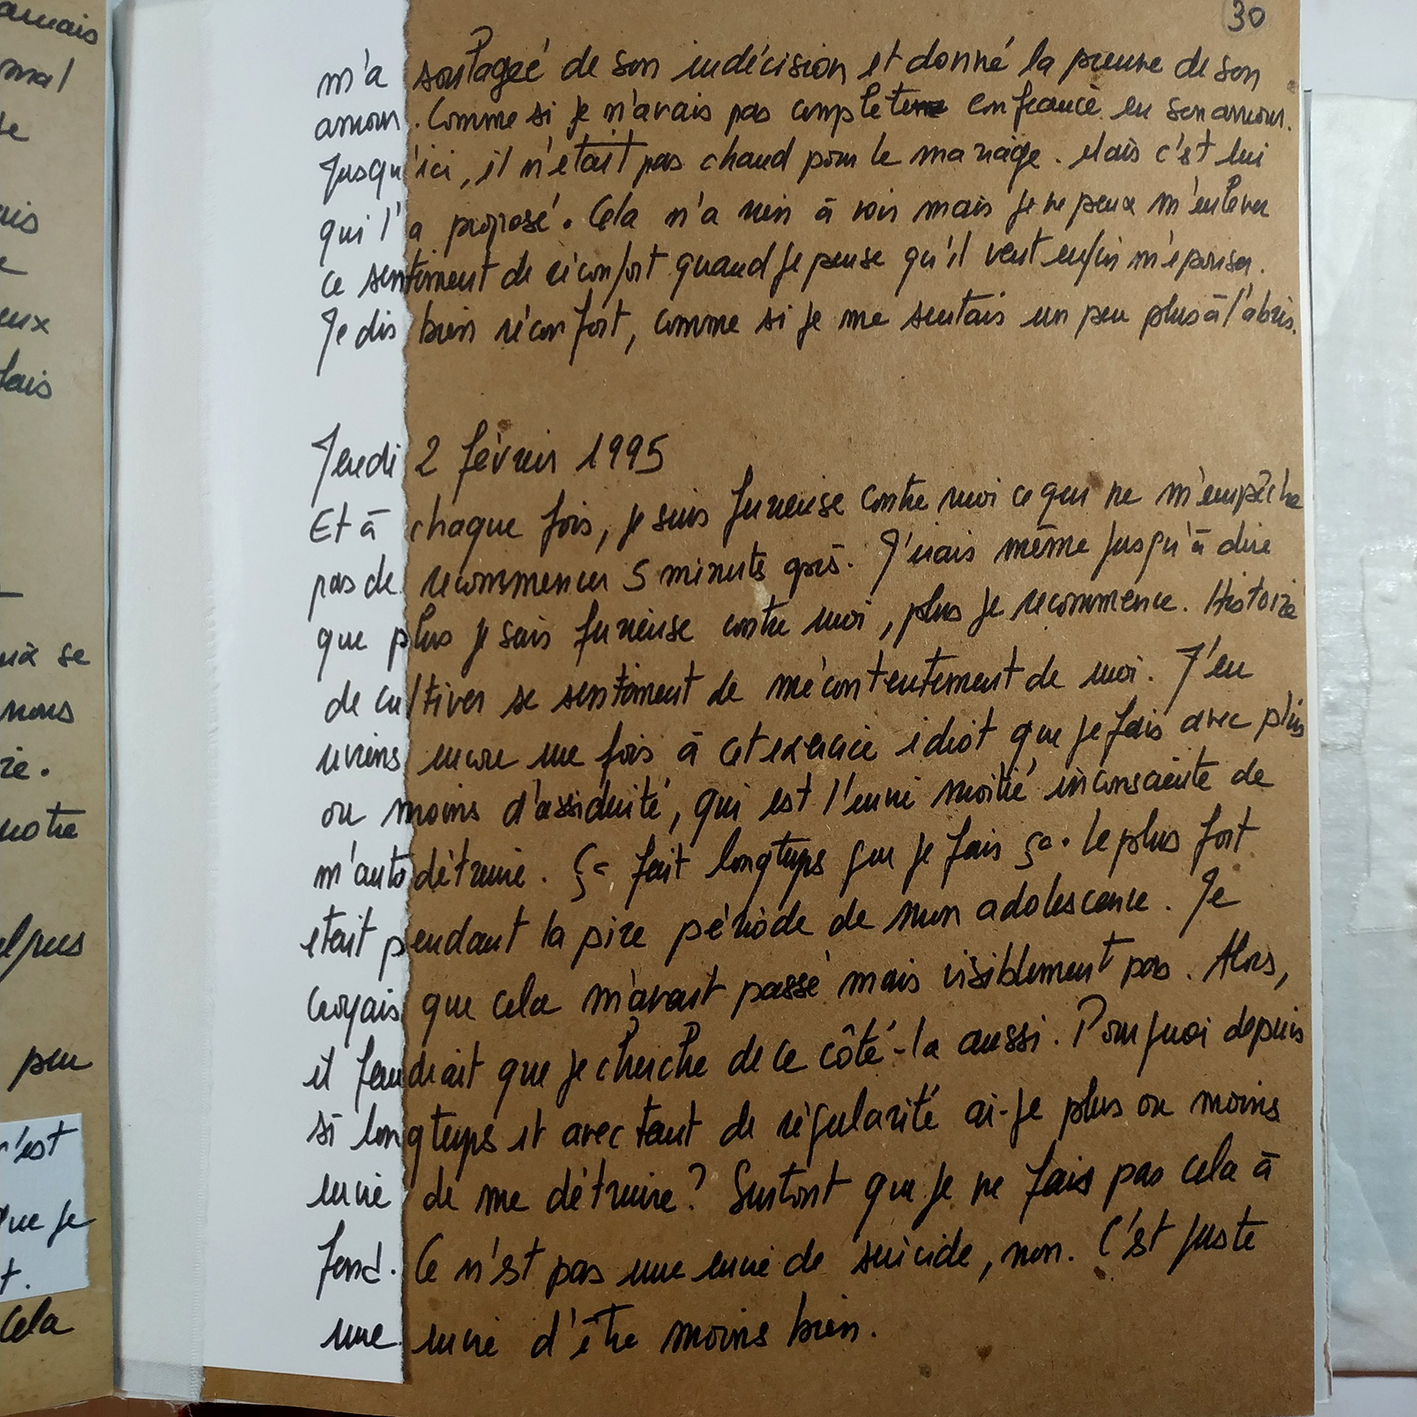 30
m'a soulagée de son indécision et donné la preuve de son
amour. Comme si je n'avais pas complètem confiance en son amour.
Jusqu'ici, il n'était pas chaud pour le mariage. Mais c'est lui
qui l'a proposé. Cela n'a rien à voir mais je ne peux m'enlever
ce sentiment de réconfort quand je pense qu'il veut enfin m'épouser.
Je dis bien réconfort, comme si je me sentais un peu plus à l'abris.
Jeudi 2 février 1995
Et à chaque fois, je suis furieuse contre moi ce qui ne m'empêche
pas de recommencer 5 minutes après. J'irais même jusqu'à dire
que plus je suis furieuse contre moi, plus je recommence. Histoire
de cultiver se sentiment de mécontentement de moi. J'en
reviens encore une fois à cet exercice idiot que je fais avec plus
ou moins d'assiduité, qui est l'envie moitié inconsciente de
m'auto détruire. Ça fait longtemps que je fais ça. Le plus fort
était pendant la pire période de mon adolescence. Je
croyais que cela m'avait passé mais visiblement pas. Alors,
il faudrait que je cherche de ce côté-là aussi. Pourquoi depuis
si longtemps et avec tant de régularité ai-je plus ou moins
envie de me détruire? Surtout que je ne fais pas cela à
fond. Ce n'est pas une envie de suicide, non. C'est juste
une envie d'être moins bien.
amais
mal
ais
eux
fais
se
nous
notre
peu
n'est
que je
Cela